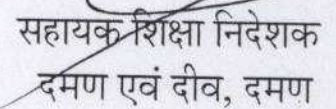 सहायक शिक्षा निदेशक
दमण एवं दीव, दमण